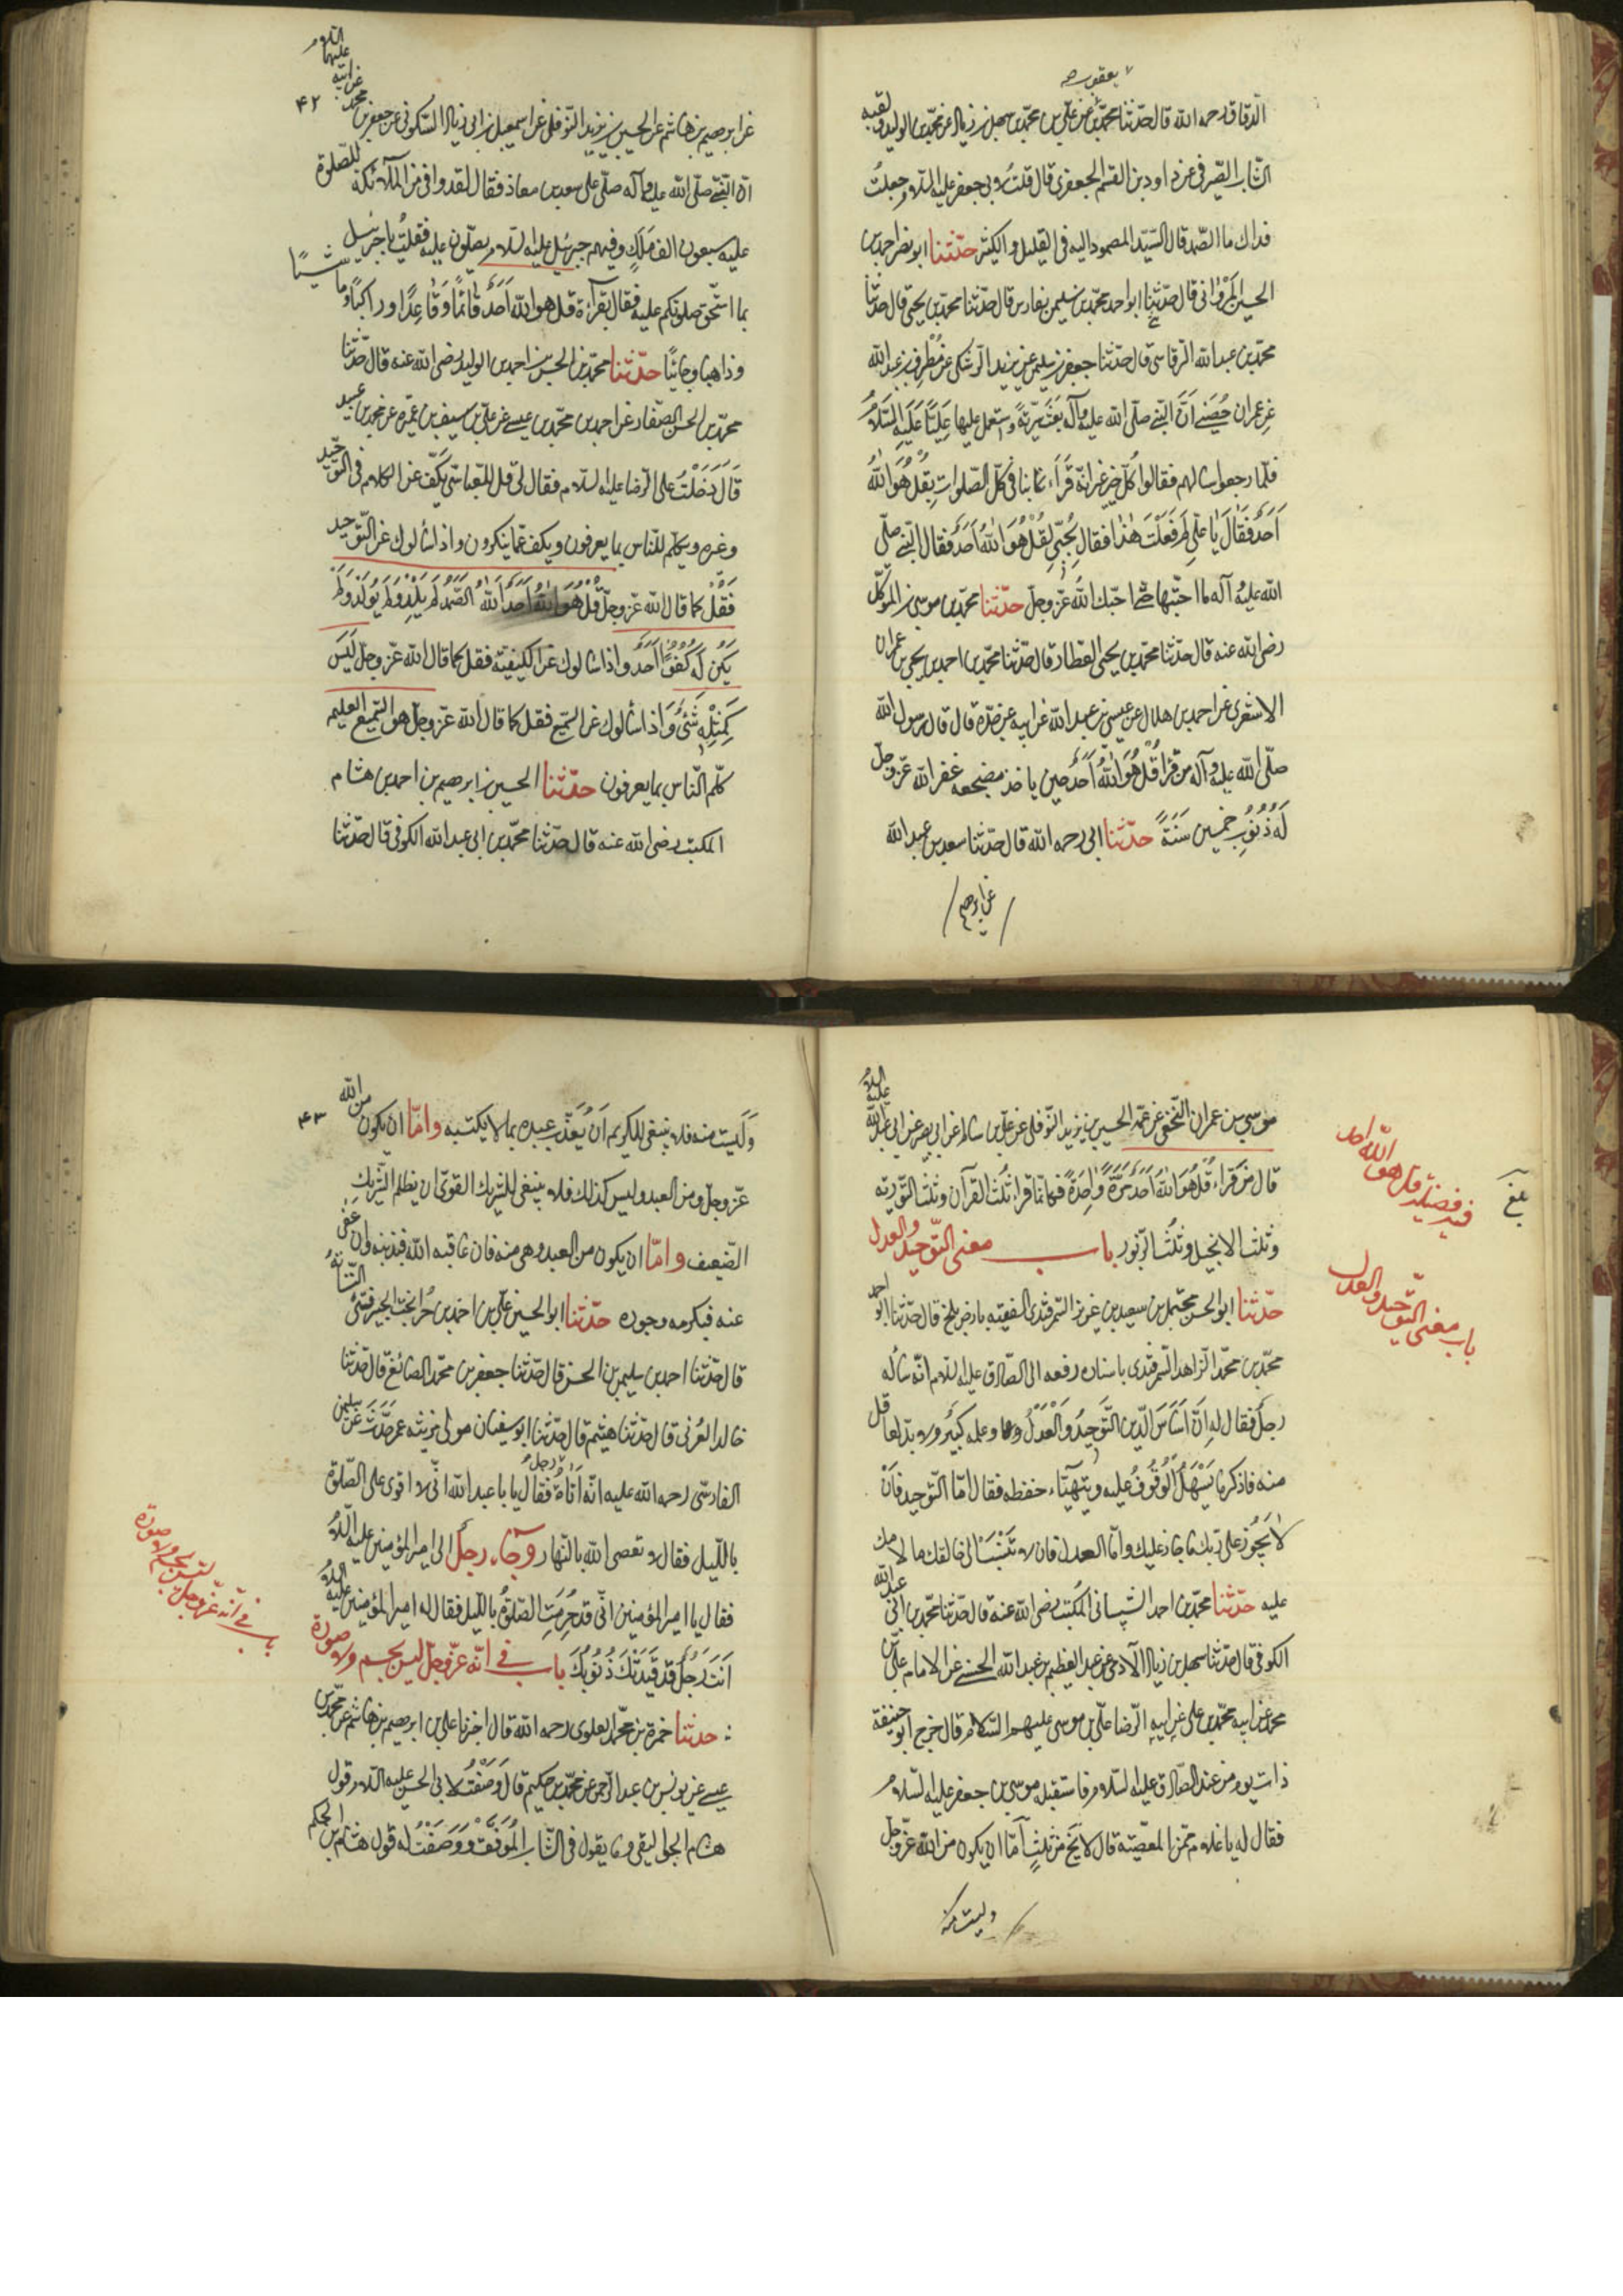 يعقوب صح
الدقاق رحمه الله قال حدثنا محمد بن عن علي بن محمد بن سهل بن زياد عن محمد بن الوليد ولقبه
الشباب الصيرفي عن داود بن القسم الجعفري قال قلت لابي جعفر عليه السلام جعلت
فداك ما الصمد قال السيد المصمود اليه في القليل والكثير حدثنا ابو نصر احمد بن
الحسين المرواني قال حدثنا ابو احمد محمد بن سليمن بفارس قال حدثنا محمد بن يحيى قال حدثنا
محمد بن عبد الله الرقاسي قال حدثنا جعفر بن سليمن عن يزيد الرشكي عن مطرف بن عبد الله
عن عمران حصين اَنَّ النبي صلّى الله عليه وآله بعث سرّيّةً واستعمل عليها عَلِيًّا عَلَيْهِ السَّلَامُ
فلمّا رجعوا سالهم فقالوا كلّ خير غير انّه قرأ بنا في كلّ الصّلوات بِقُلْ هُوَ اللهُ
اَحَدٌ فَقَالَ يا عليّ لم فَعَلْتَ هذا فقال لِحُبّي لِقُلْ هُوَ اللهُ اَحَدٌ فقال النبي صلّى
الله عليه وآله ما احبّها حتّى احبّك الله عزّ وجلّ حدّثنا محمّد بن موسى بن المتوكّل
رضي الله عنه قال حدثنا محمّد بن يحيى العطار قال حدّثنا محمّد بن احمد بن يحيى بن عمران
الاشعري عن احمد بن هلال عن عيسى بن عبد الله عن ابيه عن جدّه قال قال رسول الله
صلّى الله عليه وآله من قرأ قُلْ هُوَ اللهُ اَحَدٌ حين ياخذ مضجعه غفر الله عزّ وجلّ
لَهُ ذُنُوبَ خمسين سَنَةً حدّثنا ابي رحمه الله قال حدّثنا سعد بن عبد الله
عن ابرهيم
۴۲
عن ابرهيم بن هاشم عن الحسين بن يزيد النّوفلي عن اسمعيل بن ابي زياد السّكوني عن جعفر بن محمد عن ابيه عليهما السلام
انّ النّبيّ صلّى الله عليه وآله صلّى على سعد بن معاذ فقال لقد وافى من الملآئكة للصّلوة
عليه سبعون الف مَلَكٍ وفيهم جبرئيل عليه السّلام يصلّون عليه فقلت يا جبرئيل
بما استحقّ صلوتكم عليه فقال بقرآءة قل هو الله اَحَدٌ قَائمًا وَقَاعِدًا وراكبًا وماشيًا
وذاهبا وجائيًا حدّثنا محمّد بن الحسن بن احمد بن الوليد رضي الله عنه قال حدّثنا
محمّد بن الحسن الصّفّار عن احمد بن محمّد بن عيسى عن عليّ بن سيف بن عميرة عن محمد بن عبيد
قَالَ دَخَلْتُ على الرّضا عليه السّلام فقال لي قل للعبّاسيّ يكفّ عن الكلام في التّوحيد
وغيره ويكلّم النّاس بما يعرفون ويكفّ عمّا ينكرون واذا سألوك عن التّوحيد
فَقُلْ كما قال الله عزّ وجلّ قُلْ هُوَ اللهُ اَحَدٌ اَللهُ الصَّمَدُ لَمْ يَلِدْ وَلَمْ يُولَدْ وَلَمْ
يَكُنْ لَهُ كُفُوًا اَحَدٌ واذا سالوك عن الكيفيّة فقل كما قال الله عزّ وجلّ لَيْسَ
كَمِثْلِهِ شَئٌ وَاذا سألوك عن السّمع فقل كما قال الله عزّ وجلّ هو السّميع العليم
كلّم النّاس بما يعرفون حدّثنا الحسين بن ابرهيم بن احمد بن هشام
المكتب رضي الله عنه قال حدّثنا محمّد بن ابي عبد الله الكوفي قال حدّثنا
موسى بن عمران النّخعي عن عمّه الحسين بن يزيد النّوفلي عن عليّ بن سالم عن ابي بصير عن ابي عبد الله عليه السلام
قال من قرأ قُلْ هُوَ اللهُ اَحَدٌ مَرَّةً وَاحِدَةً فكانّما قرأ ثُلث القرآن وثلث التّورية
وثلث الانجيل وثلث الزّبور باب معنى التّوحيد والعدل
حدّثنا ابو الحسن محمّد بن سعيد بن عزيز السّمرقندي الفقيه بارض بلخ قال حدّثنا ابو احمد
محمّد بن محمّد الزّاهد السّمرقندي باسناده رفعه الى الصّادق عليه السّلام انّه سأله
رجل فقال له اِنَّ اَسَاسَ الدّين التَّوحِيدُ وَالْعَدْلُ وعلمه كثير ولا بدّ لعاقل
منه فاذكر ما يَسْهَلُ الْوُقُوفُ عليه ويتهيّأ حفظه فقال امّا التّوحيد فَاَنْ
لَا يَجُوزَ على ربّك ما جاز عليك وامّا العدل فان لا تنسب الى خالقك ما لامك
عليه حدّثنا محمّد بن احمد الشيباني المكتب رضي الله عنه قال حدّثنا محمّد بن ابي عبد الله
الكوفي قال حدّثنا سهل بن زياد الآدمي عن عبد العظيم بن عبد الله الحسني عن الامام عليّ بن
محمّد عن ابيه محمّد بن علي عن ابيه الرّضا عليّ بن موسى عليهم السّلام قال خرج ابو حنيفة
ذات يوم من عند الصّادق عليه السّلام فاستقبله موسى بن جعفر عليه السّلام
فقال له يا غلام ممّن المعصية قال لا تَخ من ثلثٍ امّا ان يكون من الله عزّ وجلّ
وليست منه
فيه فضيلة قل هو الله احد
بلغ
باب معنى التّوحيد والعدل
۴۳
وَلَيست منه فلا ينبغي للكريم اَنْ يُعَذِّبَ عبده بما لا يكتسبه وامّا ان يكون من الله
عزّ وجلّ ومن العبد وليس كذلك فلا ينبغي للشريك القويّ ان يظلم الشّريك
الضّعيف وامّا ان يكون من العبد وهي منه فان عاقبه الله فبذنبه وان عفى
عنه فبكرمه وجوده حدّثنا ابو الحسين عليّ بن احمد بن حرابخت الجيرفتيّ النّسّابة
قال حدّثنا احمد بن سليمن بن الحسن قال حدّثنا جعفر بن محمّد الصائغ قال حدّثنا
خالد العُرني قال حدّثنا هيثم قال حدّثنا ابو سفيان مولى مزينه عمّن حَدَّثَ عن سليمن
الفارسّي رحمه الله عليه انّه اَتَاهُ رجل فَقال يا با عبد الله انّي لا اقوى على الصّلوة
بالّليل فقال لا تعصي الله بالنّهار وجاء رجل الى امير المؤمنين عليه السّلام
فقال يا امير المؤمنين انّي قد حُرِمْتُ الصّلوة بالّليل فقال له امير المؤمنين عليه السلام
اَنْتَ رَجُلٌ قَد قَيَّدَتْكَ ذُنُوبُكَ باب في انّه عزّ وجلّ ليس بجسم ولا صورة
حدثنا حمزة بن محمّد العلوي رحمه الله قال اخبرنا علي بن ابرهيم بن هاشم عن محمّد بن
عيسى عن يونس بن عبد الرّحمن عن محمّد بن حكيم قال وَصَفْتُ لابي الحسن عليه السّلام قول
هشام الجواليقي وما يقول في الشّاب المُوَفَّق وَوَصَفْتُ له قول هشام بن الحكم
باب في انّه عزّ وجلّ ليس بجسم ولا صورة